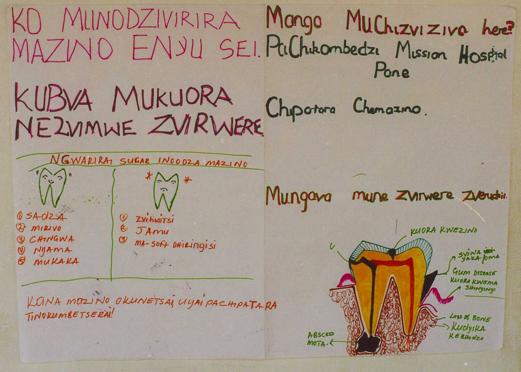 KO MUNODZIVIRIRA
MAZINO ENYU SEI.
KUBVA MUKUORA
NEZVIMWE ZVIRWERE
NGWARIRAI SUGAR INOODZA MAZINO
① SADZA
② MIRIVO
③ CHINGWA
④ NYAMA
⑤ MUKAKA
① ZVIHWITSI
② JAMU
③ MA-SOFT DHIRINGISI
KANA MAZINO OKUNETSAI UYAI PACHIPATARA
TINOKUBETSERAI!
Mango MuChizviziva here?
PaChikombedzi Mission Hospital
Pane
Chipatara Chemazino.
Mungava mune zvirwere
KUORA KWEZINO
SVINA
GUM DISEASE
KUORA KWEMA
LOSS OF BONE
KUDYIKA
ABSCESS
MOTA